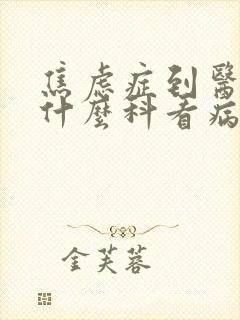 焦虑症到醫
什麼科看病
金芙蓉